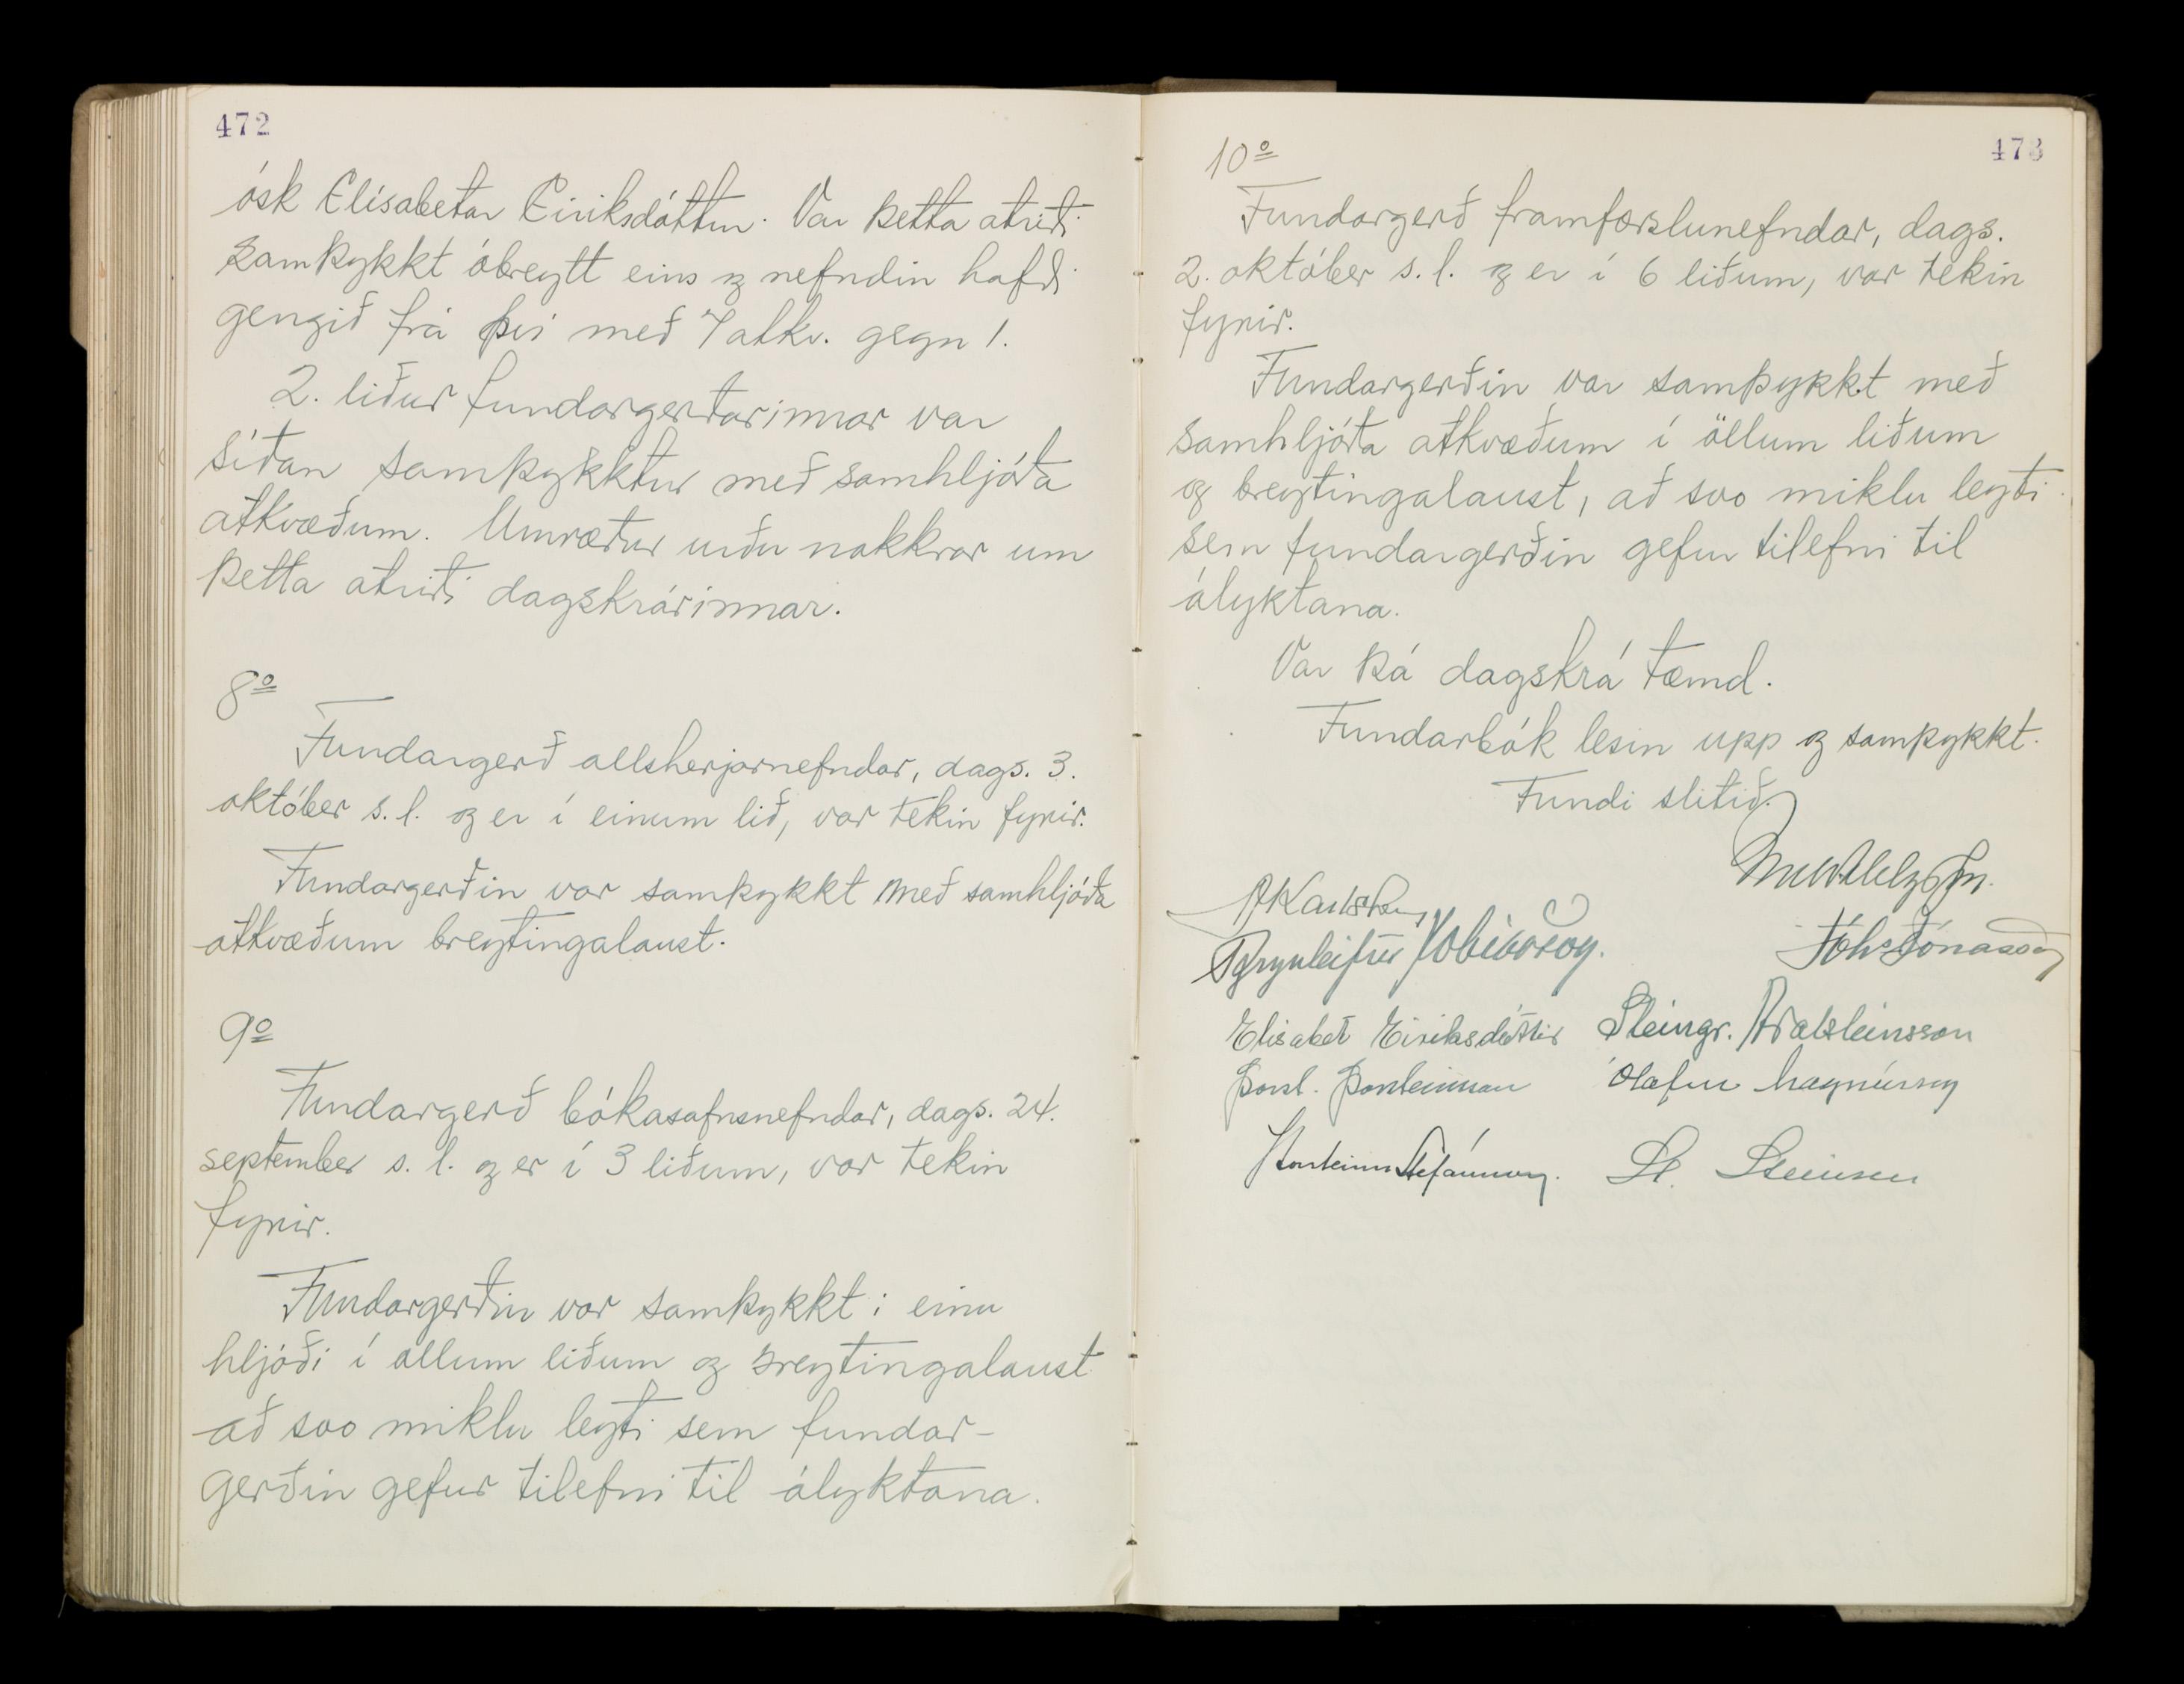 472
ósk Elísabetar Eiriksdóttur. Var þetta atriði
samþykkt óbreytt eins og nefndin hafði
gengið frá því með 7 atkv. gegn 1.
2. liður fundargerðarinnar var
síðan samþykktur með samhljóða
atkvæðum. Umræður urðu nokkrar um
þetta atriði dagskrárinnar.
8º
Fundargerð allsherjarnefndar, dags. 3.
október s.l. og er í einum lið, var tekin fyrir.
Fundargerðin var samþykkt með samhljóða
atkvæðum breytingalaust.
9º
Fundargerð bókasafnsnefndar, dags. 24.
september s. l. og er í 3 liðum, var tekin
fyrir.
Fundargerðin var samþykkt í einu
hljóði í öllum liðum og breytingalaust
að svo miklu leyti sem fundar-
gerðin gefur tilefni til ályktana.
473
10º
Fundargerð framfærslunefndar, dags.
2. október s.l. og er í 6 liðum, var tekin
fyrir.
Fundargerðin var samþykkt með
samhljóða atkvæðum í öllum liðum
og breytingalaust, að svo miklu leyti
sem fundargerðin gefur tilefni til
ályktana.
Var þá dagskrá tæmd.
Fundarbók lesin upp og samþykkt.
Fundi slitið.
Brynleifur Tobiasson. Jóh. Jónasson
Elisabet Eiriksdóttir Steingr. Aðalsteinsson
Þorst. Þorsteinsson Ólafur Magnússon
Þorsteinn Stefánsson. St. Steinsen